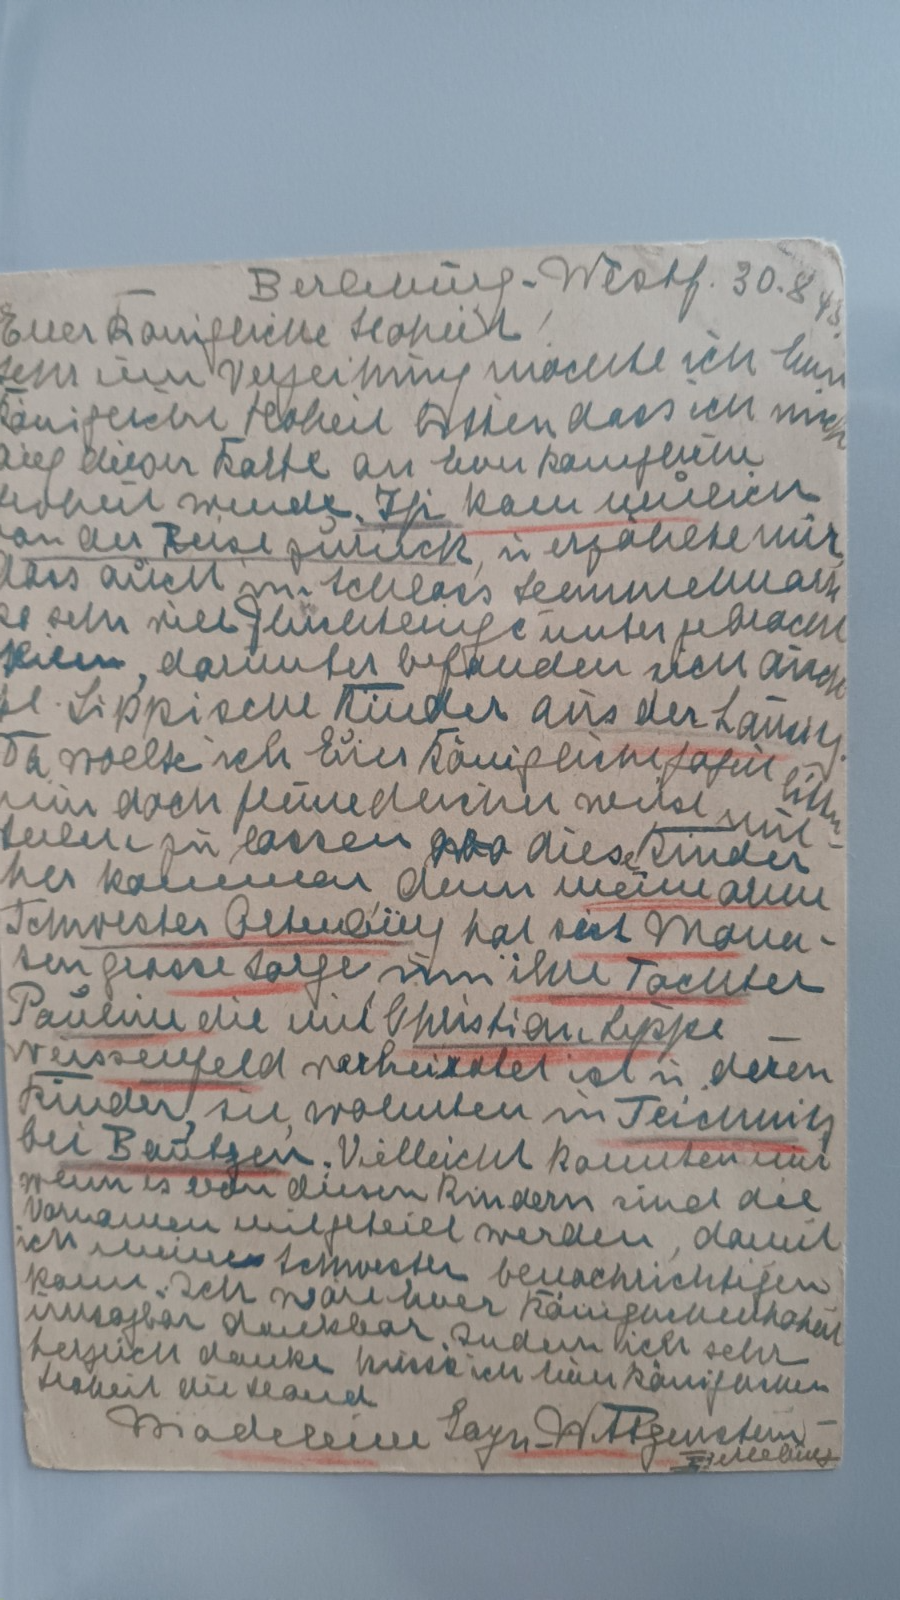 Berleburg-Westf. 30.8.45.
Euer Königliche Hoheit!
Sehr um Verzeihung möchte ich Euer
Königliche Hoheit bitten dass ich mich
auf dieser Karte an Euer Königliche
Hoheit wende. kam neulich
von der Reise zurück, u erzählte mir,
dass auch im Schloss Hemmelmark
so sehr viel Flüchtlinge untergebracht
seien, darunter befanden sich auch
Lippische Kinder aus der Lausitz.
Da wollte ich Euer Königliche Hoheit bitten
mir doch freundlicher weise mit-
teilen zu lassen wo diese Kinder
her kommen, denn meine arme
Schwester Ortenburg hat seit Mona-
ten grosse Sorge um ihre Tochter
Pauline die mit Christian Lippe
Weissenfeld verheiratet ist u. deren
Kinder, sie wohnten in Teichnitz
bei Bautzen. Vielleicht könnten mir
wenn es von diesen Kindern sind die
Vornamen mitgeteilt werden, damit
ich meine Schwester benachrichtigen
kann. Ich wäre Euer Königlichen Hoheit
unsagbar dankbar. Indem ich sehr
herzlich danke küsse ich Euer Königlichen
Hoheit die Hand
Madeleine Sayn-Wittgenstein-
Berleburg